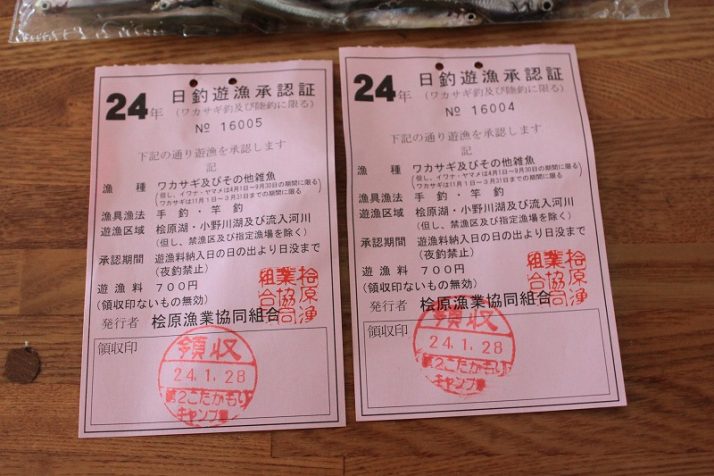 24年 日釣遊漁承認証
(ワカサギ釣及び陸釣に限る)
№ 16005
下記の通り遊漁を承認します
記
漁 種 ワカサギ及びその他雑魚
(但し、イワナ・ヤマメは4月1日〜9月30日の期間に限る)
(ワカサギは11月1日〜3月31日までの期間に限る)
漁具漁法 手釣・竿釣
遊漁区域 桧原湖・小野川湖及び流入河川
(但し、禁漁区及び指定漁場を除く)
承認期間 遊漁料納入日の日の出より日没まで
(夜釣禁止)
遊漁料 700円
(領収印ないもの無効)
発行者 桧原漁業協同組合
桧原漁業協同組合
領収印
領収
24.1.28
第2こたかもり
キャンプ場
24年 日釣遊漁承認証
(ワカサギ釣及び陸釣に限る)
№ 16004
下記の通り遊漁を承認します
記
漁 種 ワカサギ及びその他雑魚
(但し、イワナ・ヤマメは4月1日〜9月30日の期間に限る)
(ワカサギは11月1日〜3月31日までの期間に限る)
漁具漁法 手釣・竿釣
遊漁区域 桧原湖・小野川湖及び流入河川
(但し、禁漁区及び指定漁場を除く)
承認期間 遊漁料納入日の日の出より日没まで
(夜釣禁止)
遊漁料 700円
(領収印ないもの無効)
発行者 桧原漁業協同組合
桧原漁業協同組合
領収印
領収
24.1.28
第2こたかもり
キャンプ場